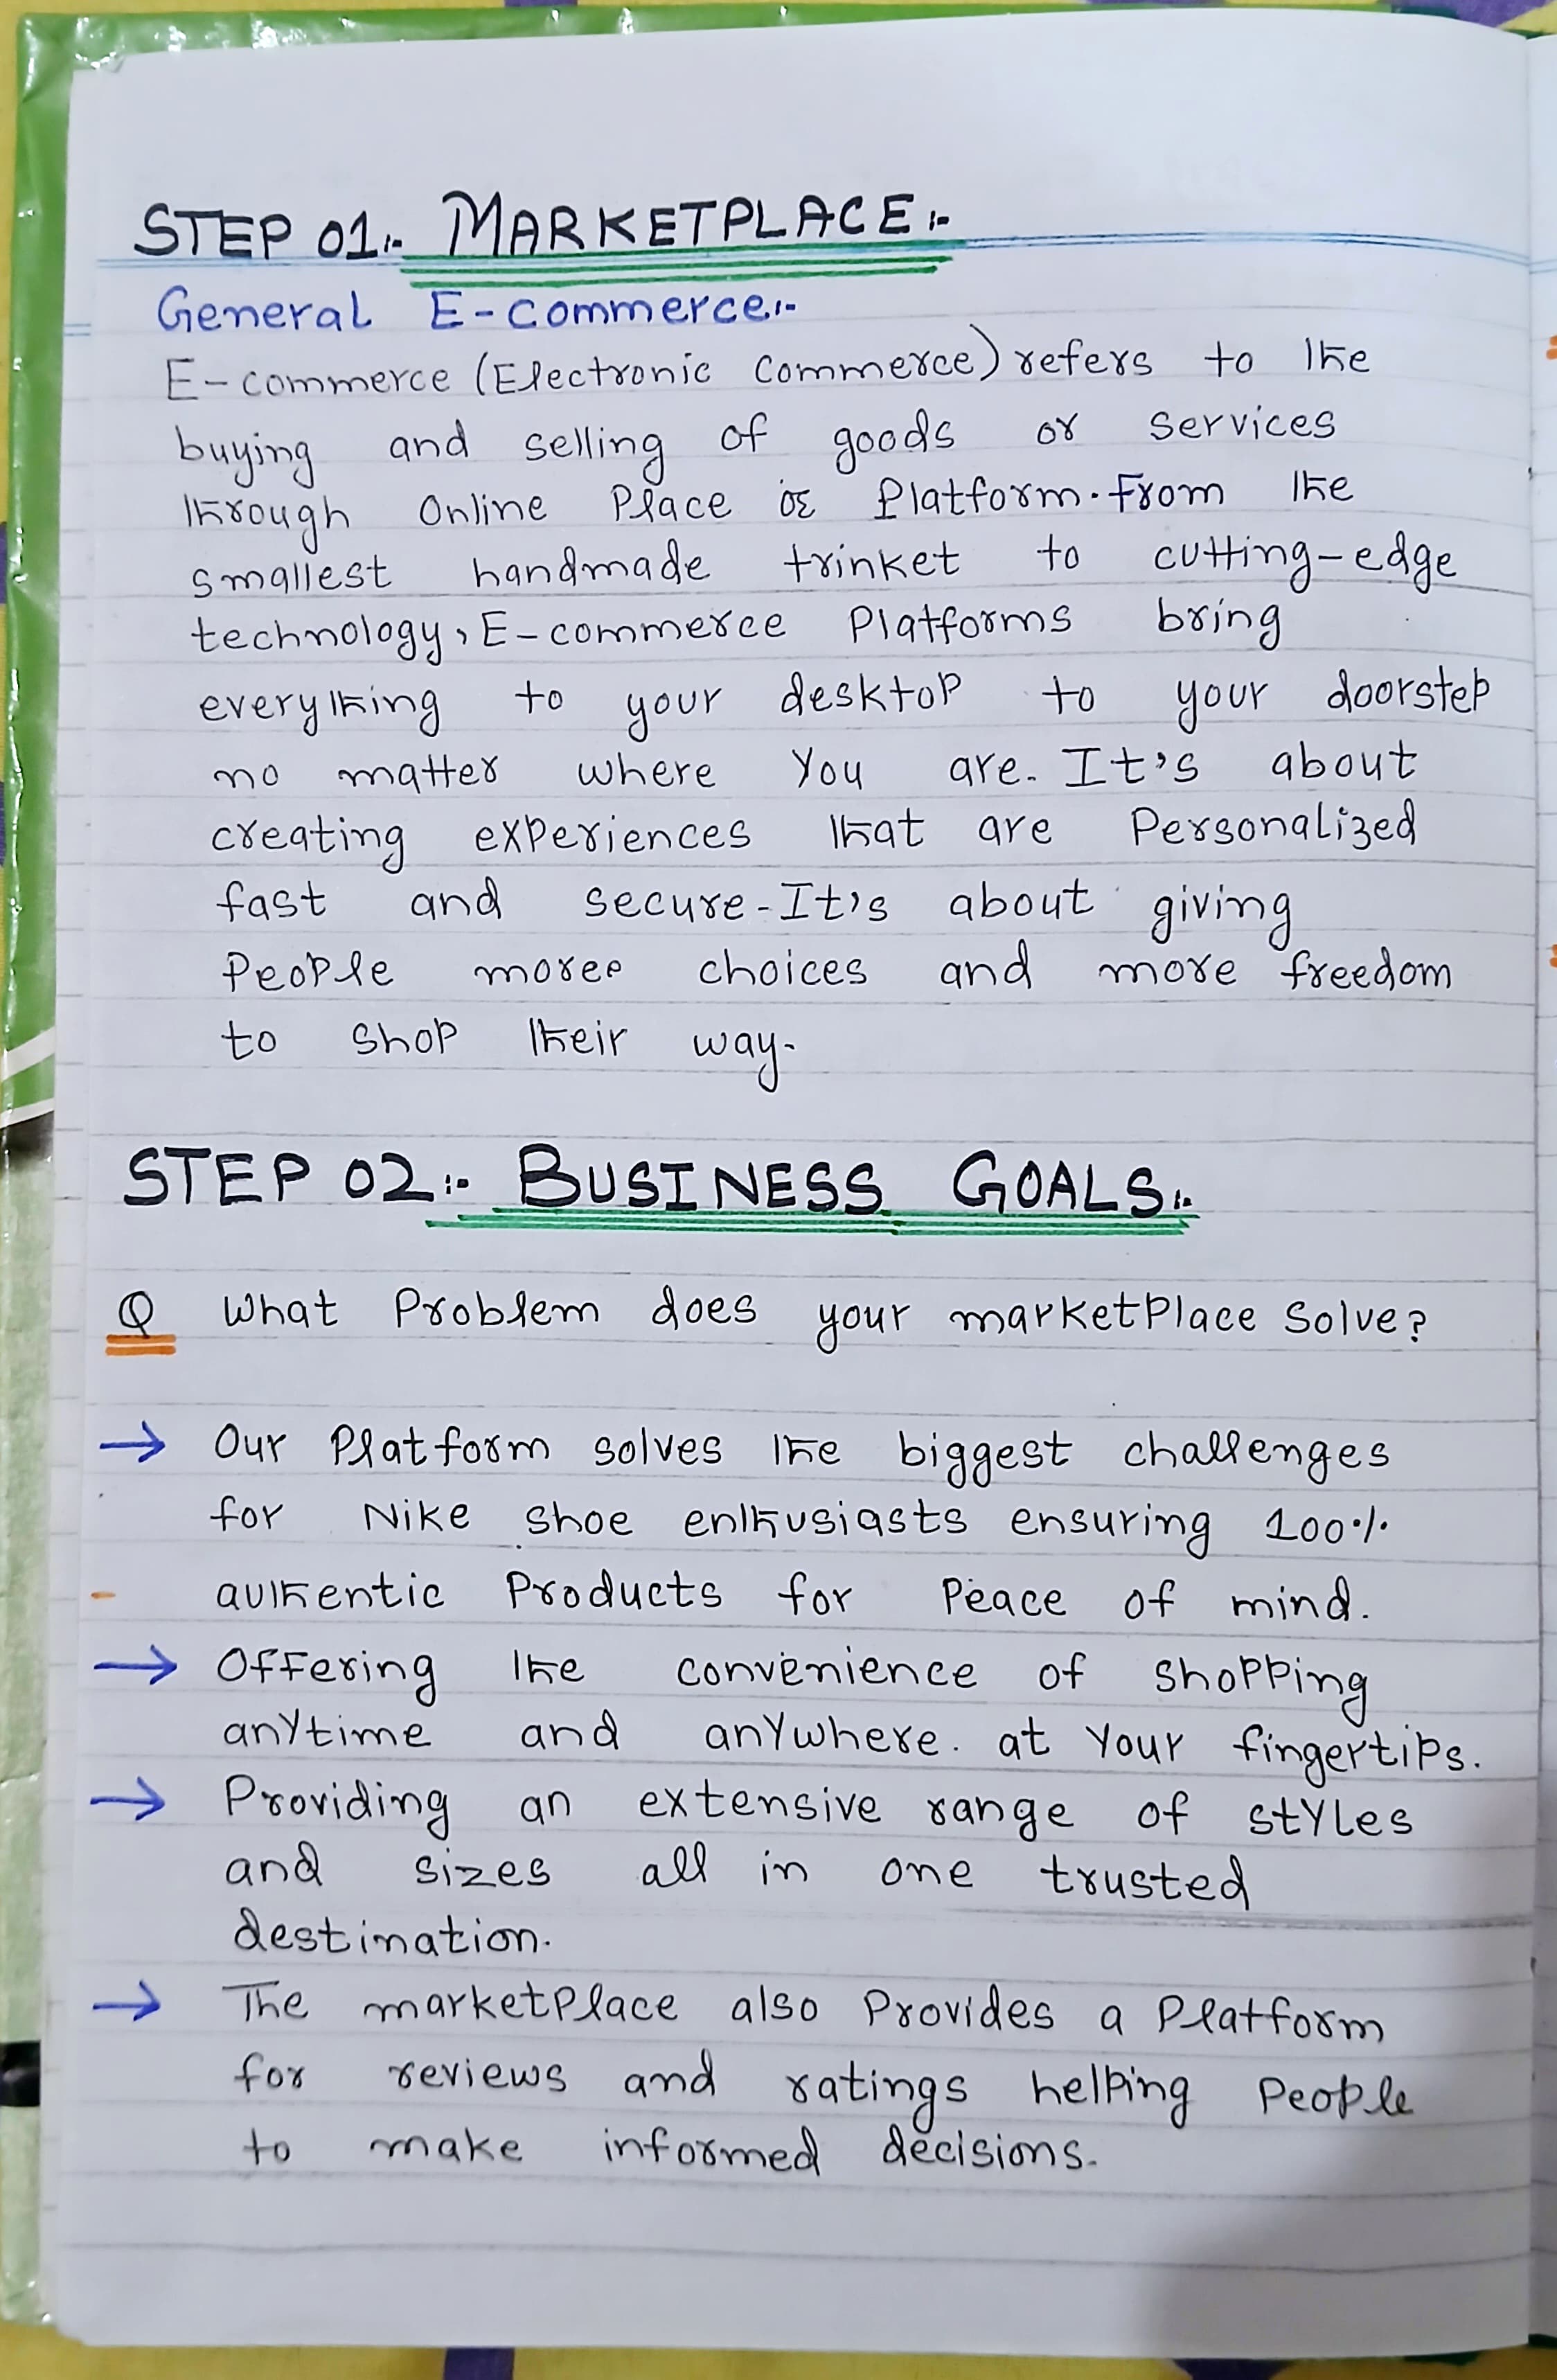 STEP 01:- MARKETPLACE:-
General E-commerce:-
E-commerce (Electronic Commerce) refers to the
buying and selling of goods or services
through Online Place or Platform. From the
smallest handmade trinket to cutting-edge
technology, E-commerce Platforms bring
everything to your desktop to your doorstep
no matter where you are. It's about
creating experiences that are Personalized
fast and secure - It's about giving
People moree choices and more freedom
to shop their way.
STEP 02:- BUSINESS GOALS:-
Q What Problem does your marketPlace Solve?
→ Our Platform solves the biggest challenges
for Nike shoe enthusiasts ensuring 100%
authentic Products for Peace of mind.
→ Offering the convenience of shopping
anytime and anywhere. at Your fingertips.
→ Providing an extensive range of styles
and sizes all in one trusted
destination.
→ The marketplace also Provides a Platform
for reviews and ratings helping People
to make informed decisions.